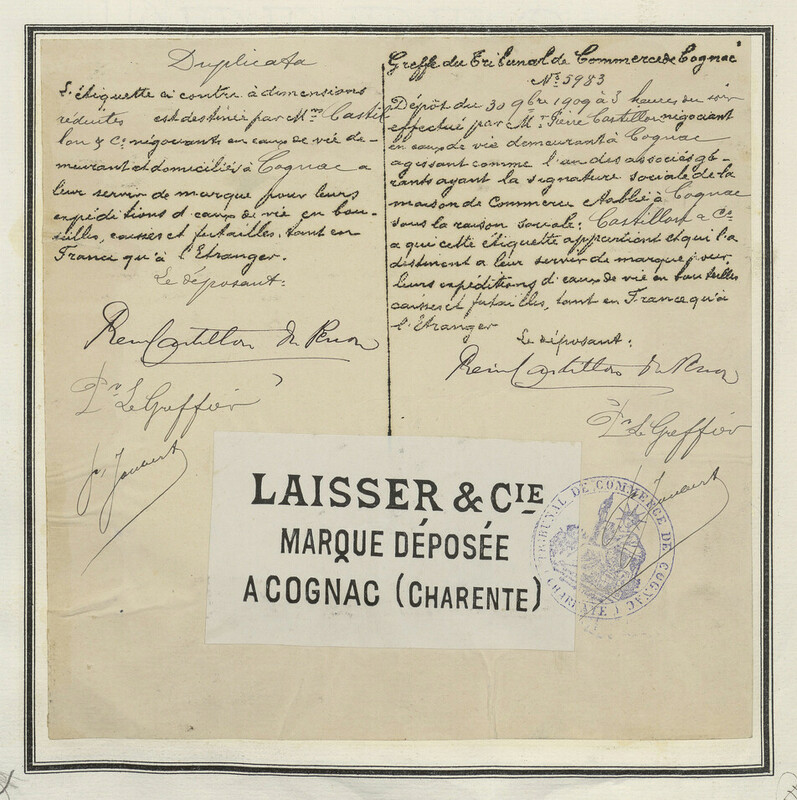 Duplicata
L'étiquette ci contre à dimensions
réduites est destinée par Mrs Castil-
lon & Cie négociants en eaux de vie de-
meurant et domiciliés à Cognac a
leur servir de marque pour leurs
expéditions d'eaux de vie en bou-
teilles, caisses et futailles, tant en
France qu'à l'Etranger.
Le déposant:
Castillon du Perron
Pr Le Greffier
Greffe du Tribunal de Commerce de Cognac
No 5983
Dépôt du 30 9bre 1909 à 3 heures du soir
effectué par Mr Pierre Castillon négociant
en eaux de vie demeurant à Cognac
agissant comme l'un des associés gé-
rants ayant la signature sociale de la
maison de Commerce établie à Cognac
sous la raison sociale: Castillon & Cie
a qui cette étiquette appartient et qui l'a
destinent a leur servir de marque pour
leurs expéditions d'eaux de vie en bouteilles
caisses et futailles, tant en France qu'à
l'Etranger
Le déposant:
Castillon du Perron
Pr Le Greffier
LAISSER & CIE
MARQUE DÉPOSÉE
A COGNAC (CHARENTE)
TRIBUNAL DE COMMERCE DE COGNAC
(CHARENTE)